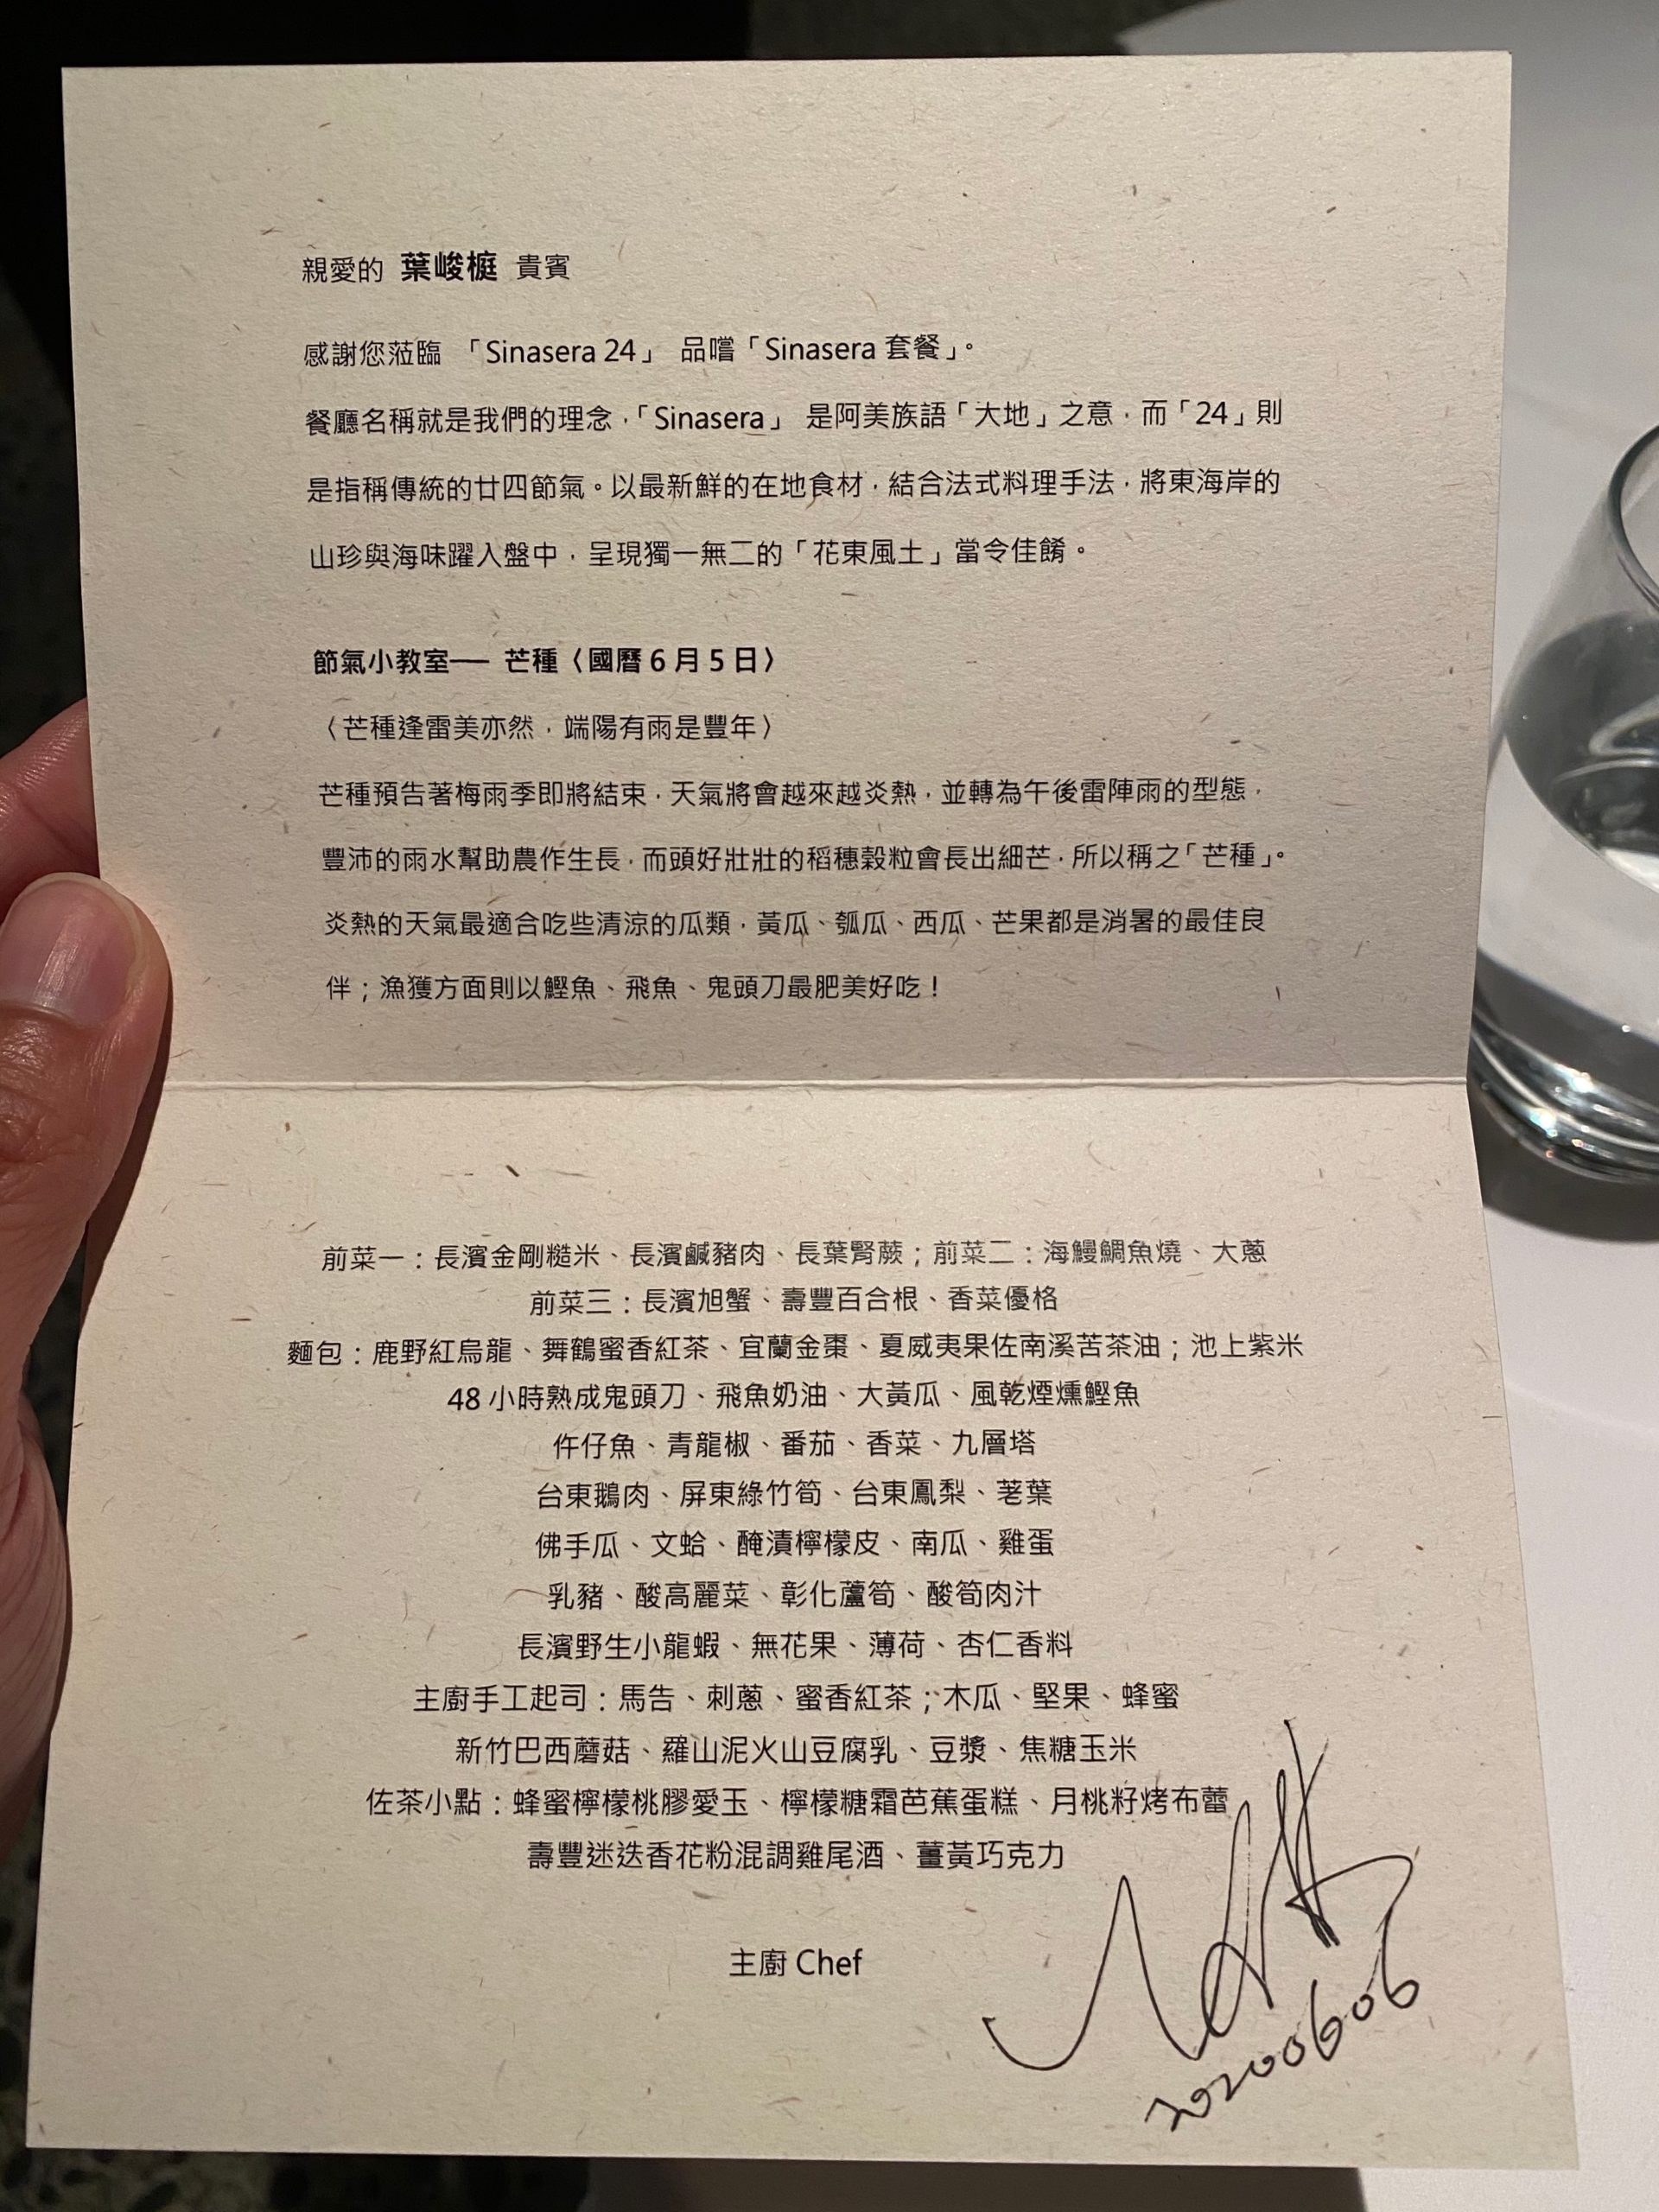 親愛的 葉峻榳 貴賓
感謝您蒞臨 「Sinasera 24」 品嚐「Sinasera 套餐」。
餐廳名稱就是我們的理念，「Sinasera」 是阿美族語「大地」之意，而「24」則
是指稱傳統的廿四節氣。以最新鮮的在地食材，結合法式料理手法，將東海岸的
山珍與海味躍入盤中，呈現獨一無二的「花東風土」當令佳餚。
節氣小教室── 芒種〈國曆 6 月 5 日〉
〈芒種逢雷美亦然，端陽有雨是豐年〉
芒種預告著梅雨季即將結束，天氣將會越來越炎熱，並轉為午後雷陣雨的型態，
豐沛的雨水幫助農作生長，而頭好壯壯的稻穗穀粒會長出細芒，所以稱之「芒種」。
炎熱的天氣最適合吃些清涼的瓜類，黃瓜、瓠瓜、西瓜、芒果都是消暑的最佳良
伴；漁獲方面則以鰹魚、飛魚、鬼頭刀最肥美好吃！
前菜一：長濱金剛糙米、長濱鹹豬肉、長葉腎蕨；前菜二：海鰻鯛魚燒、大蔥
前菜三：長濱旭蟹、壽豐百合根、香菜優格
麵包：鹿野紅烏龍、舞鶴蜜香紅茶、宜蘭金棗、夏威夷果佐南溪苦茶油；池上紫米
48 小時熟成鬼頭刀、飛魚奶油、大黃瓜、風乾煙燻鰹魚
仵仔魚、青龍椒、番茄、香菜、九層塔
台東鵝肉、屏東綠竹筍、台東鳳梨、荖葉
佛手瓜、文蛤、醃漬檸檬皮、南瓜、雞蛋
乳豬、酸高麗菜、彰化蘆筍、酸筍肉汁
長濱野生小龍蝦、無花果、薄荷、杏仁香料
主廚手工起司：馬告、刺蔥、蜜香紅茶；木瓜、堅果、蜂蜜
新竹巴西蘑菇、羅山泥火山豆腐乳、豆漿、焦糖玉米
佐茶小點：蜂蜜檸檬桃膠愛玉、檸檬糖霜芭蕉蛋糕、月桃籽烤布蕾
壽豐迷迭香花粉混調雞尾酒、薑黃巧克力
主廚 Chef
20200606